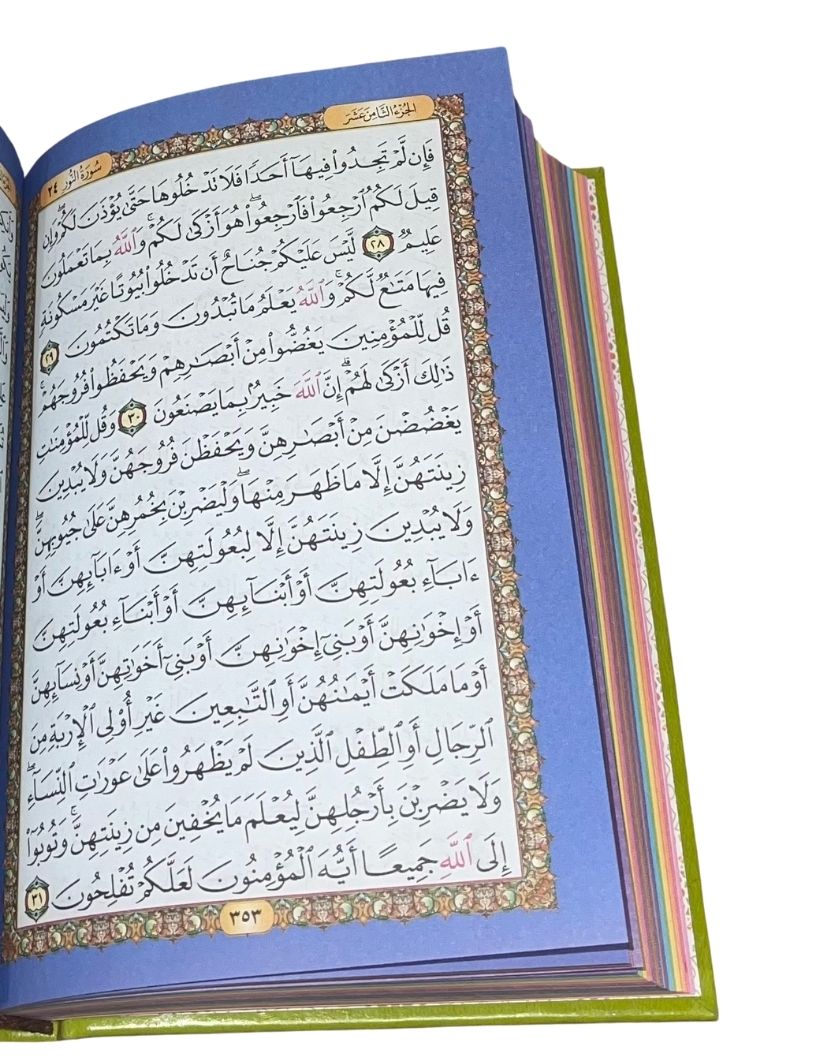 الجزء الثامن عشر
سورة النور ٢٤
فَإِن لَّمْ تَجِدُوا۟ فِيهَآ أَحَدًا فَلَا تَدْخُلُوهَا حَتَّىٰ يُؤْذَنَ لَكُمْ ۖ وَإِن
قِيلَ لَكُمُ ٱرْجِعُوا۟ فَٱرْجِعُوا۟ ۖ هُوَ أَزْكَىٰ لَكُمْ ۚ وَٱللَّهُ بِمَا تَعْمَلُونَ
عَلِيمٌ ٢٨ لَّيْسَ عَلَيْكُمْ جُنَاحٌ أَن تَدْخُلُوا۟ بُيُوتًا غَيْرَ مَسْكُونَةٍ
فِيهَا مَتَـٰعٌ لَّكُمْ ۚ وَٱللَّهُ يَعْلَمُ مَا تُبْدُونَ وَمَا تَكْتُمُونَ ٢٩
قُل لِّلْمُؤْمِنِينَ يَغُضُّوا۟ مِنْ أَبْصَـٰرِهِمْ وَيَحْفَظُوا۟ فُرُوجَهُمْ ۚ
ذَٰلِكَ أَزْكَىٰ لَهُمْ ۗ إِنَّ ٱللَّهَ خَبِيرٌۢ بِمَا يَصْنَعُونَ ٣٠ وَقُل لِّلْمُؤْمِنَـٰتِ
يَغْضُضْنَ مِنْ أَبْصَـٰرِهِنَّ وَيَحْفَظْنَ فُرُوجَهُنَّ وَلَا يُبْدِينَ
زِينَتَهُنَّ إِلَّا مَا ظَهَرَ مِنْهَا ۖ وَلْيَضْرِبْنَ بِخُمُرِهِنَّ عَلَىٰ جُيُوبِهِنَّ ۖ
وَلَا يُبْدِينَ زِينَتَهُنَّ إِلَّا لِبُعُولَتِهِنَّ أَوْ ءَابَآئِهِنَّ أَوْ
ءَابَآءِ بُعُولَتِهِنَّ أَوْ أَبْنَآئِهِنَّ أَوْ أَبْنَآءِ بُعُولَتِهِنَّ
أَوْ إِخْوَٰنِهِنَّ أَوْ بَنِىٓ إِخْوَٰنِهِنَّ أَوْ بَنِىٓ أَخَوَٰتِهِنَّ أَوْ نِسَآئِهِنَّ
أَوْ مَا مَلَكَتْ أَيْمَـٰنُهُنَّ أَوِ ٱلتَّـٰبِعِينَ غَيْرِ أُو۟لِى ٱلْإِرْبَةِ مِنَ
ٱلرِّجَالِ أَوِ ٱلطِّفْلِ ٱلَّذِينَ لَمْ يَظْهَرُوا۟ عَلَىٰ عَوْرَٰتِ ٱلنِّسَآءِ ۖ
وَلَا يَضْرِبْنَ بِأَرْجُلِهِنَّ لِيُعْلَمَ مَا يُخْفِينَ مِن زِينَتِهِنَّ ۚ وَتُوبُوٓا۟
إِلَى ٱللَّهِ جَمِيعًا أَيُّهَ ٱلْمُؤْمِنُونَ لَعَلَّكُمْ تُفْلِحُونَ ٣١
٣٥٣